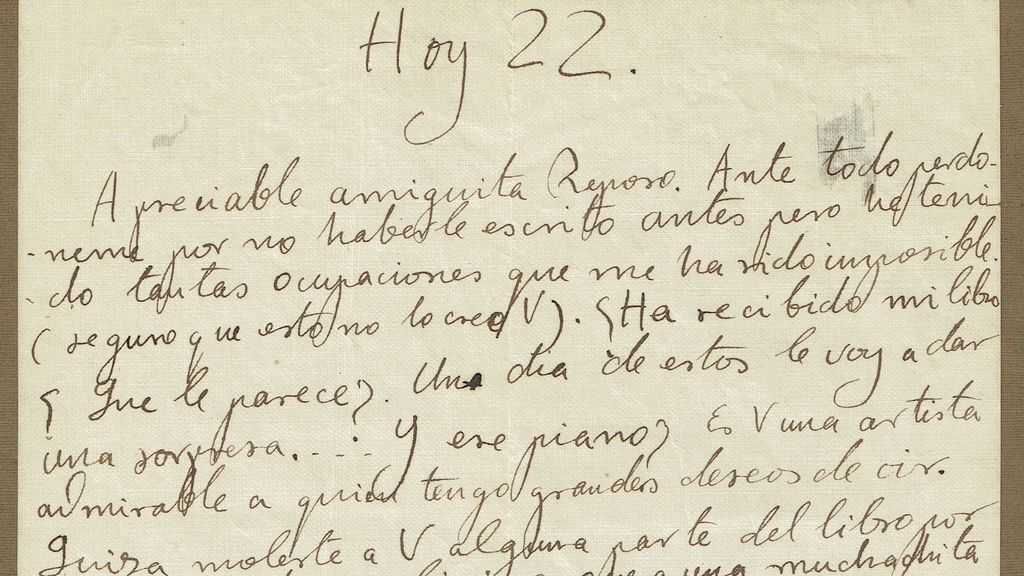 Hoy 22.
Apreciable amiguita Reposo. Ante todo perdo-
-neme por no haberle escrito antes pero he teni
-do tantas ocupaciones que me ha sido imposible.
(seguro que esto no lo cree V). ¿Ha recibido mi libro
¿Que le parece?. Un dia de estos le voy a dar
una sorpresa..... Y ese piano? Es V una artista
admirable a quien tengo grandes deseos de oir.
Quiza moleste a V alguna parte del libro por
una muchachita